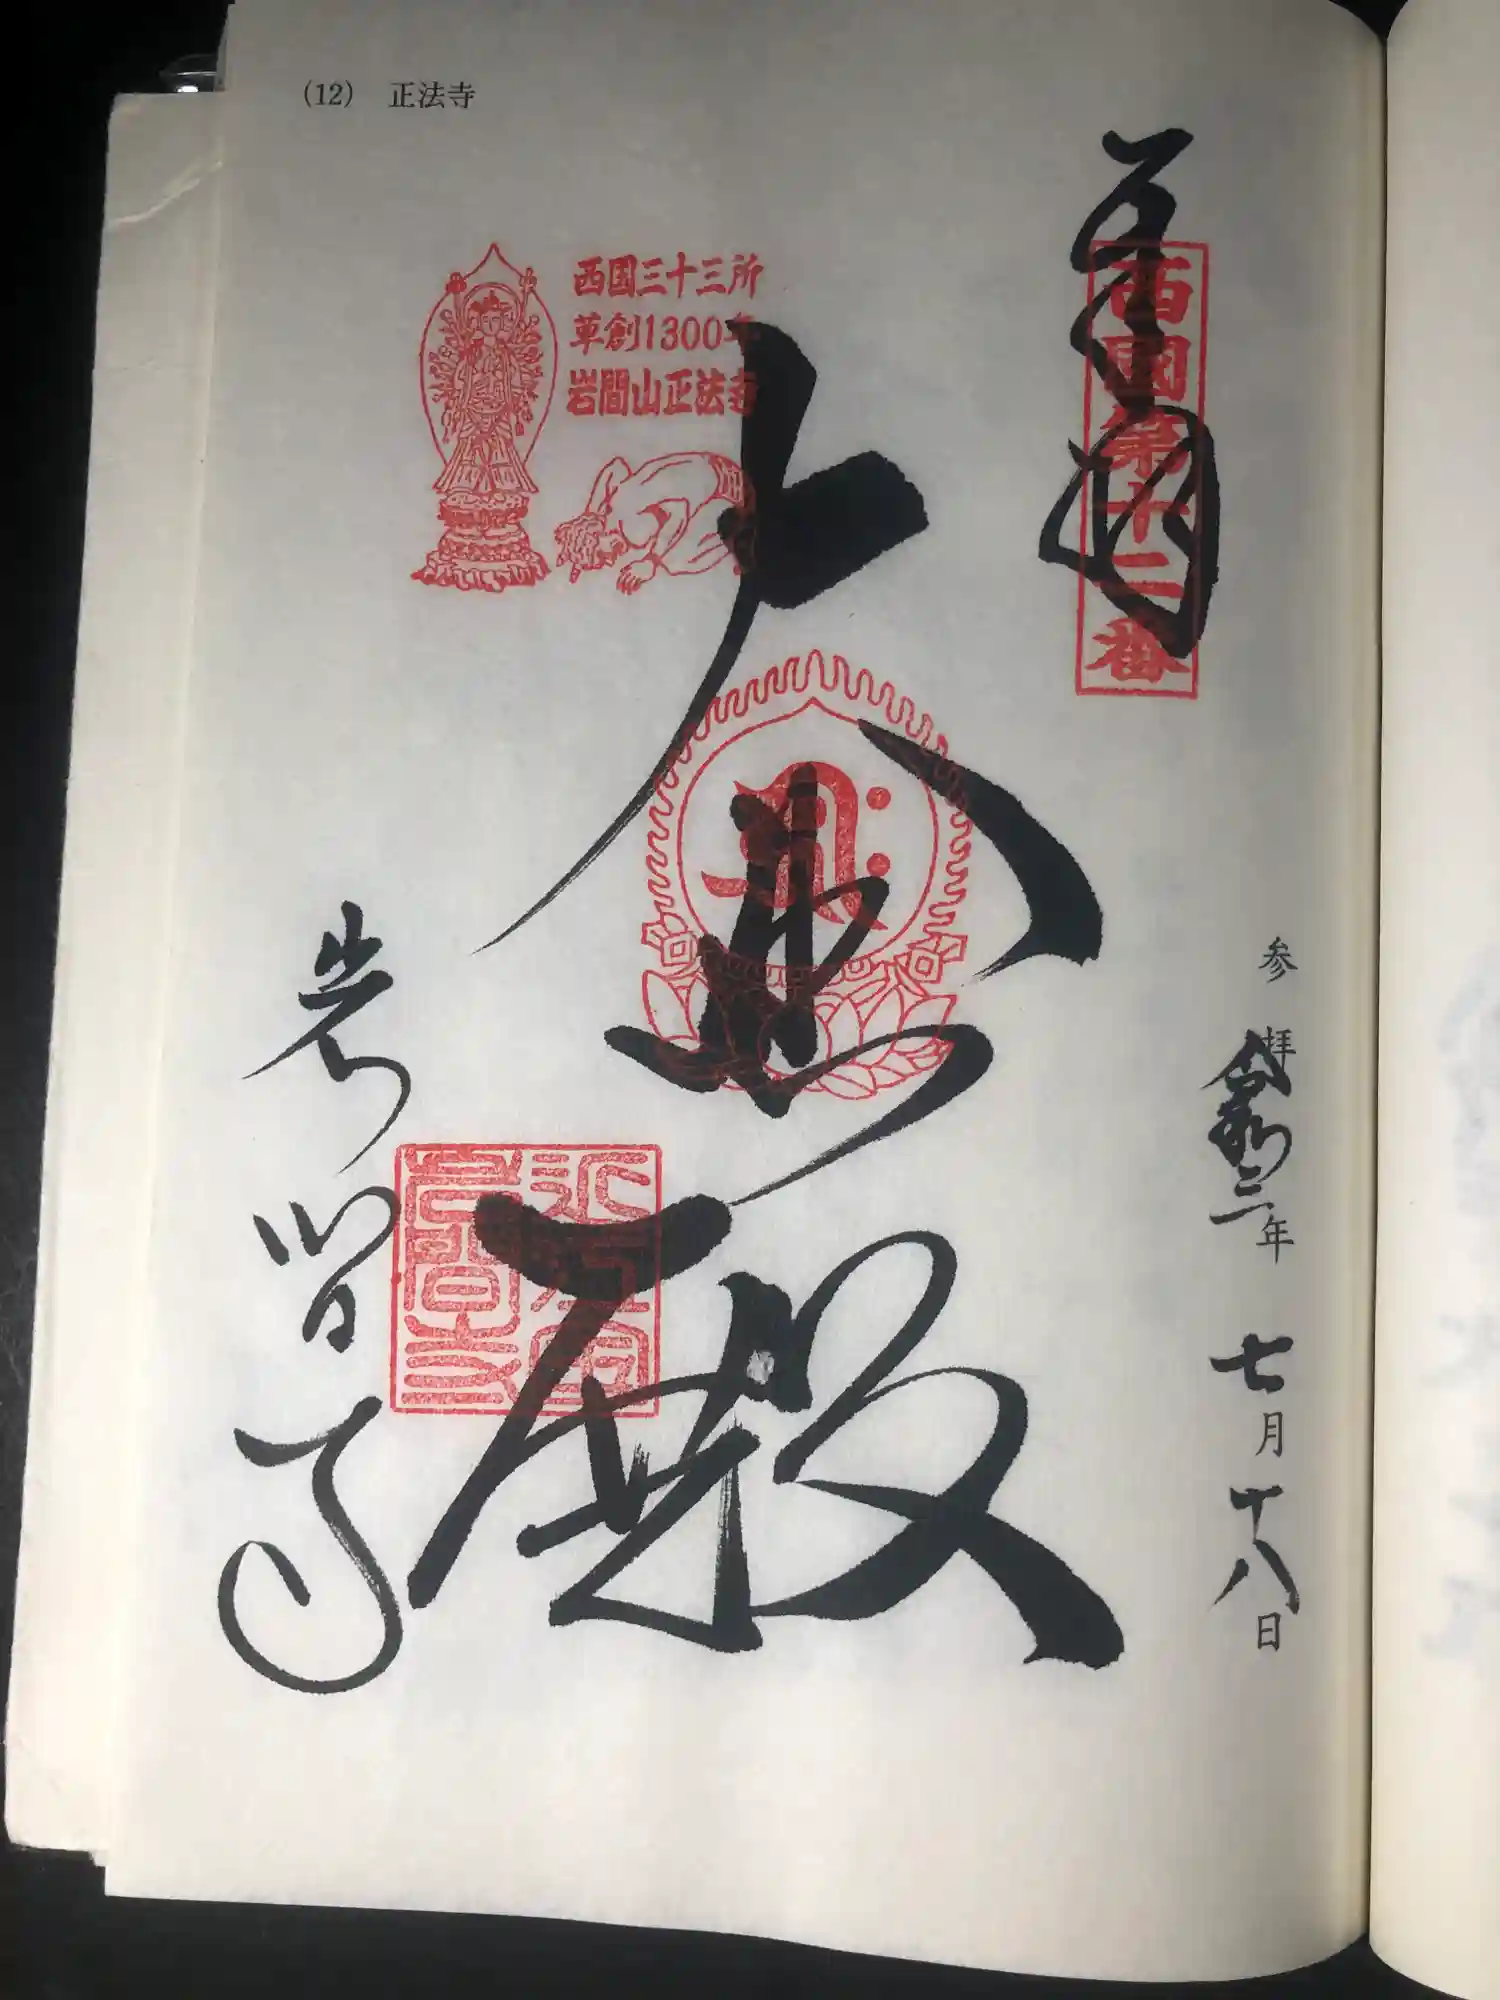 (12) 正法寺
奉拝
西國第十二番
参拝 令和三年 七月十八日
西国三十三所
草創1300年
岩間山正法寺
大悲殿
岩間寺